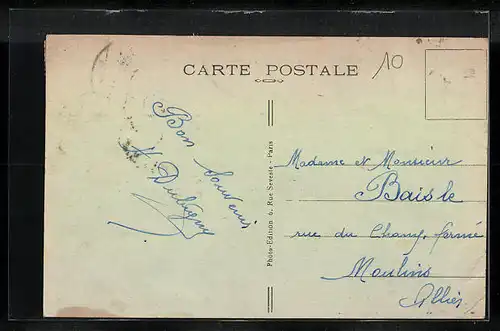 CARTE POSTALE
10
Bon Souvenir
Photo-Edition 6, Rue Seveste - Paris
Madame et Monsieur
Baisle
rue du Champ fermé
Moulins
Allier